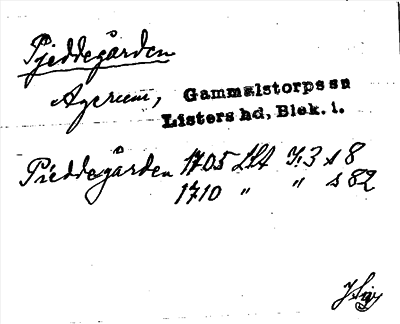 Pjeddegården
Agerum, Gammalstorps sn
Listers hd, Blek. l.
Pieddegården 1705 LLt I:3 s 8
1710 " " s 82